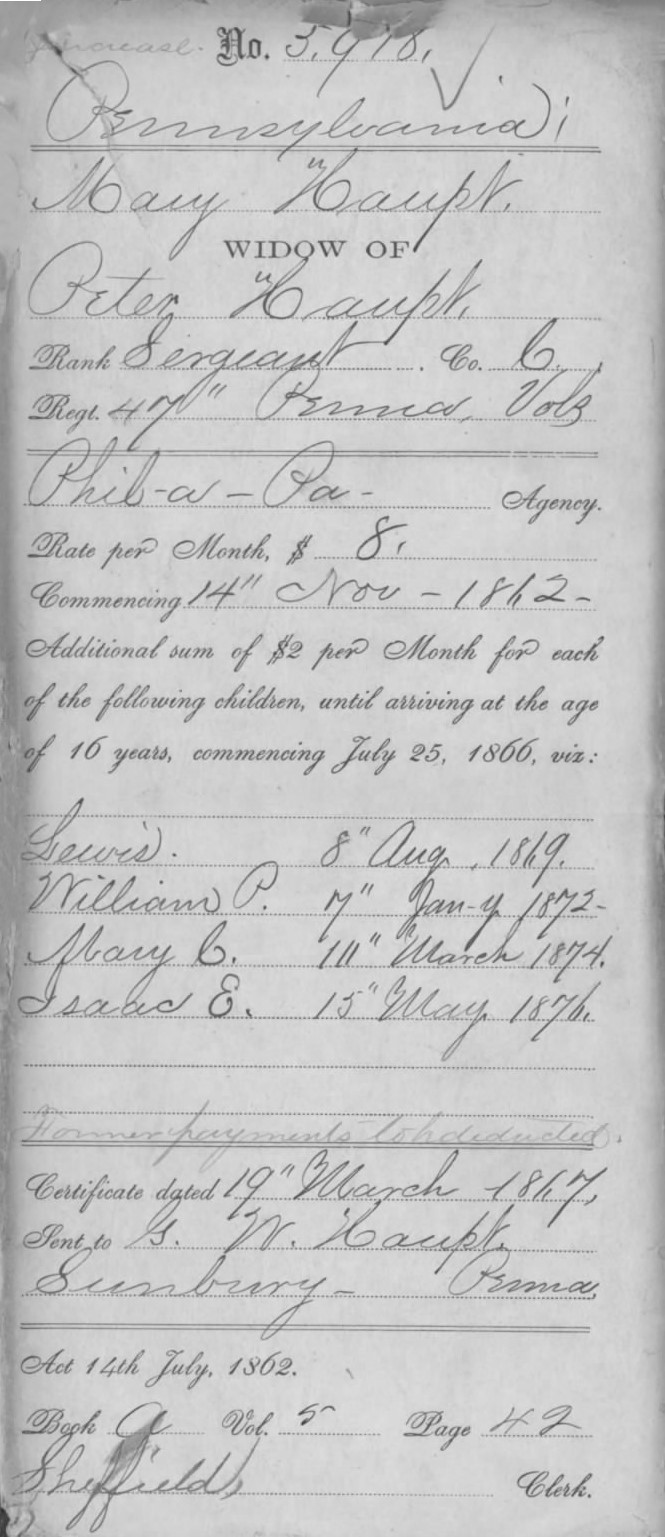 Increase. No. 5,918,
Pennsylvania;
Mary Haupt.
WIDOW OF
Peter Haupt.
Rank Sergeant . Co. C.
Regt. 47" Penna, Vols
Phil-a - Pa - Agency.
Rate per Month, $ 8.
Commencing 14" Nov - 1862 -
Additional sum of $2 per Month for each
of the following children, until arriving at the age
of 16 years, commencing July 25, 1866, viz:
Lewis. 8" Aug, 1869.
William P. 7" Jan-y 1872-
Mary C. March 1874.
Isaac E. 15" May 1876.
Former payments to be deducted.
Certificate dated 19" March 1867,
Sent to G. W. Haupt.
Sunbury - Penna,
Act 14th July, 1862.
Book A Vol. 5 Page 42
Sheffield Clerk.